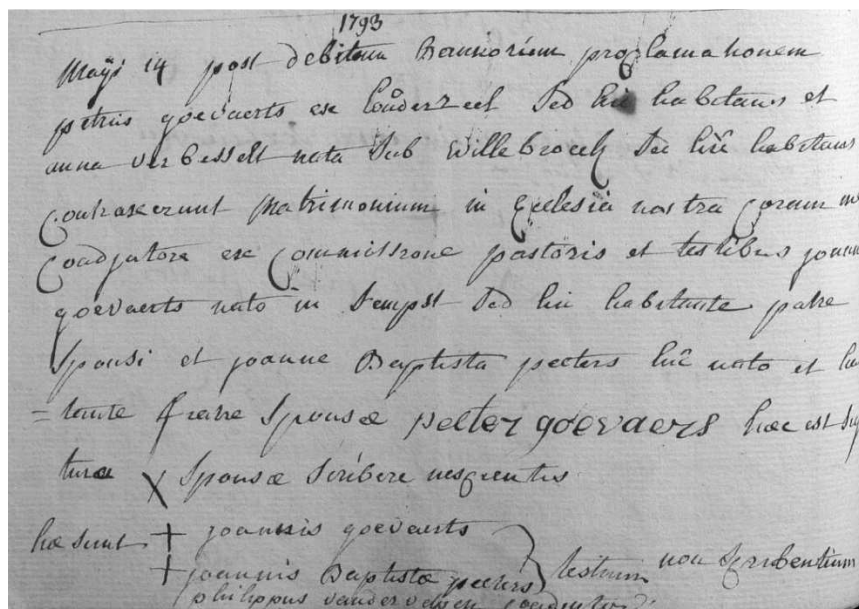 1793
Maÿi 14 post debitam bannorum proclamationem
petrus goevaerts ex londerzeel sed hic habitans et
anna verbesselt nata sub willebroeck sed hic habitans
contraxerunt matrimonium in ecclesia nostra coram me
coadjutore ex commissione pastoris et testibus joanne
goevaerts nato in sempst sed hic habitante patre
sponsi et joanne Baptista peeters hîc nato et ha
= tante fratre sponsæ peeter goevaers hæc est sig
tura X sponsæ scribere nescientis
hæ sunt + joannis goevaerts
+ joannis Baptistæ peeters } testium non scribentium
philippus